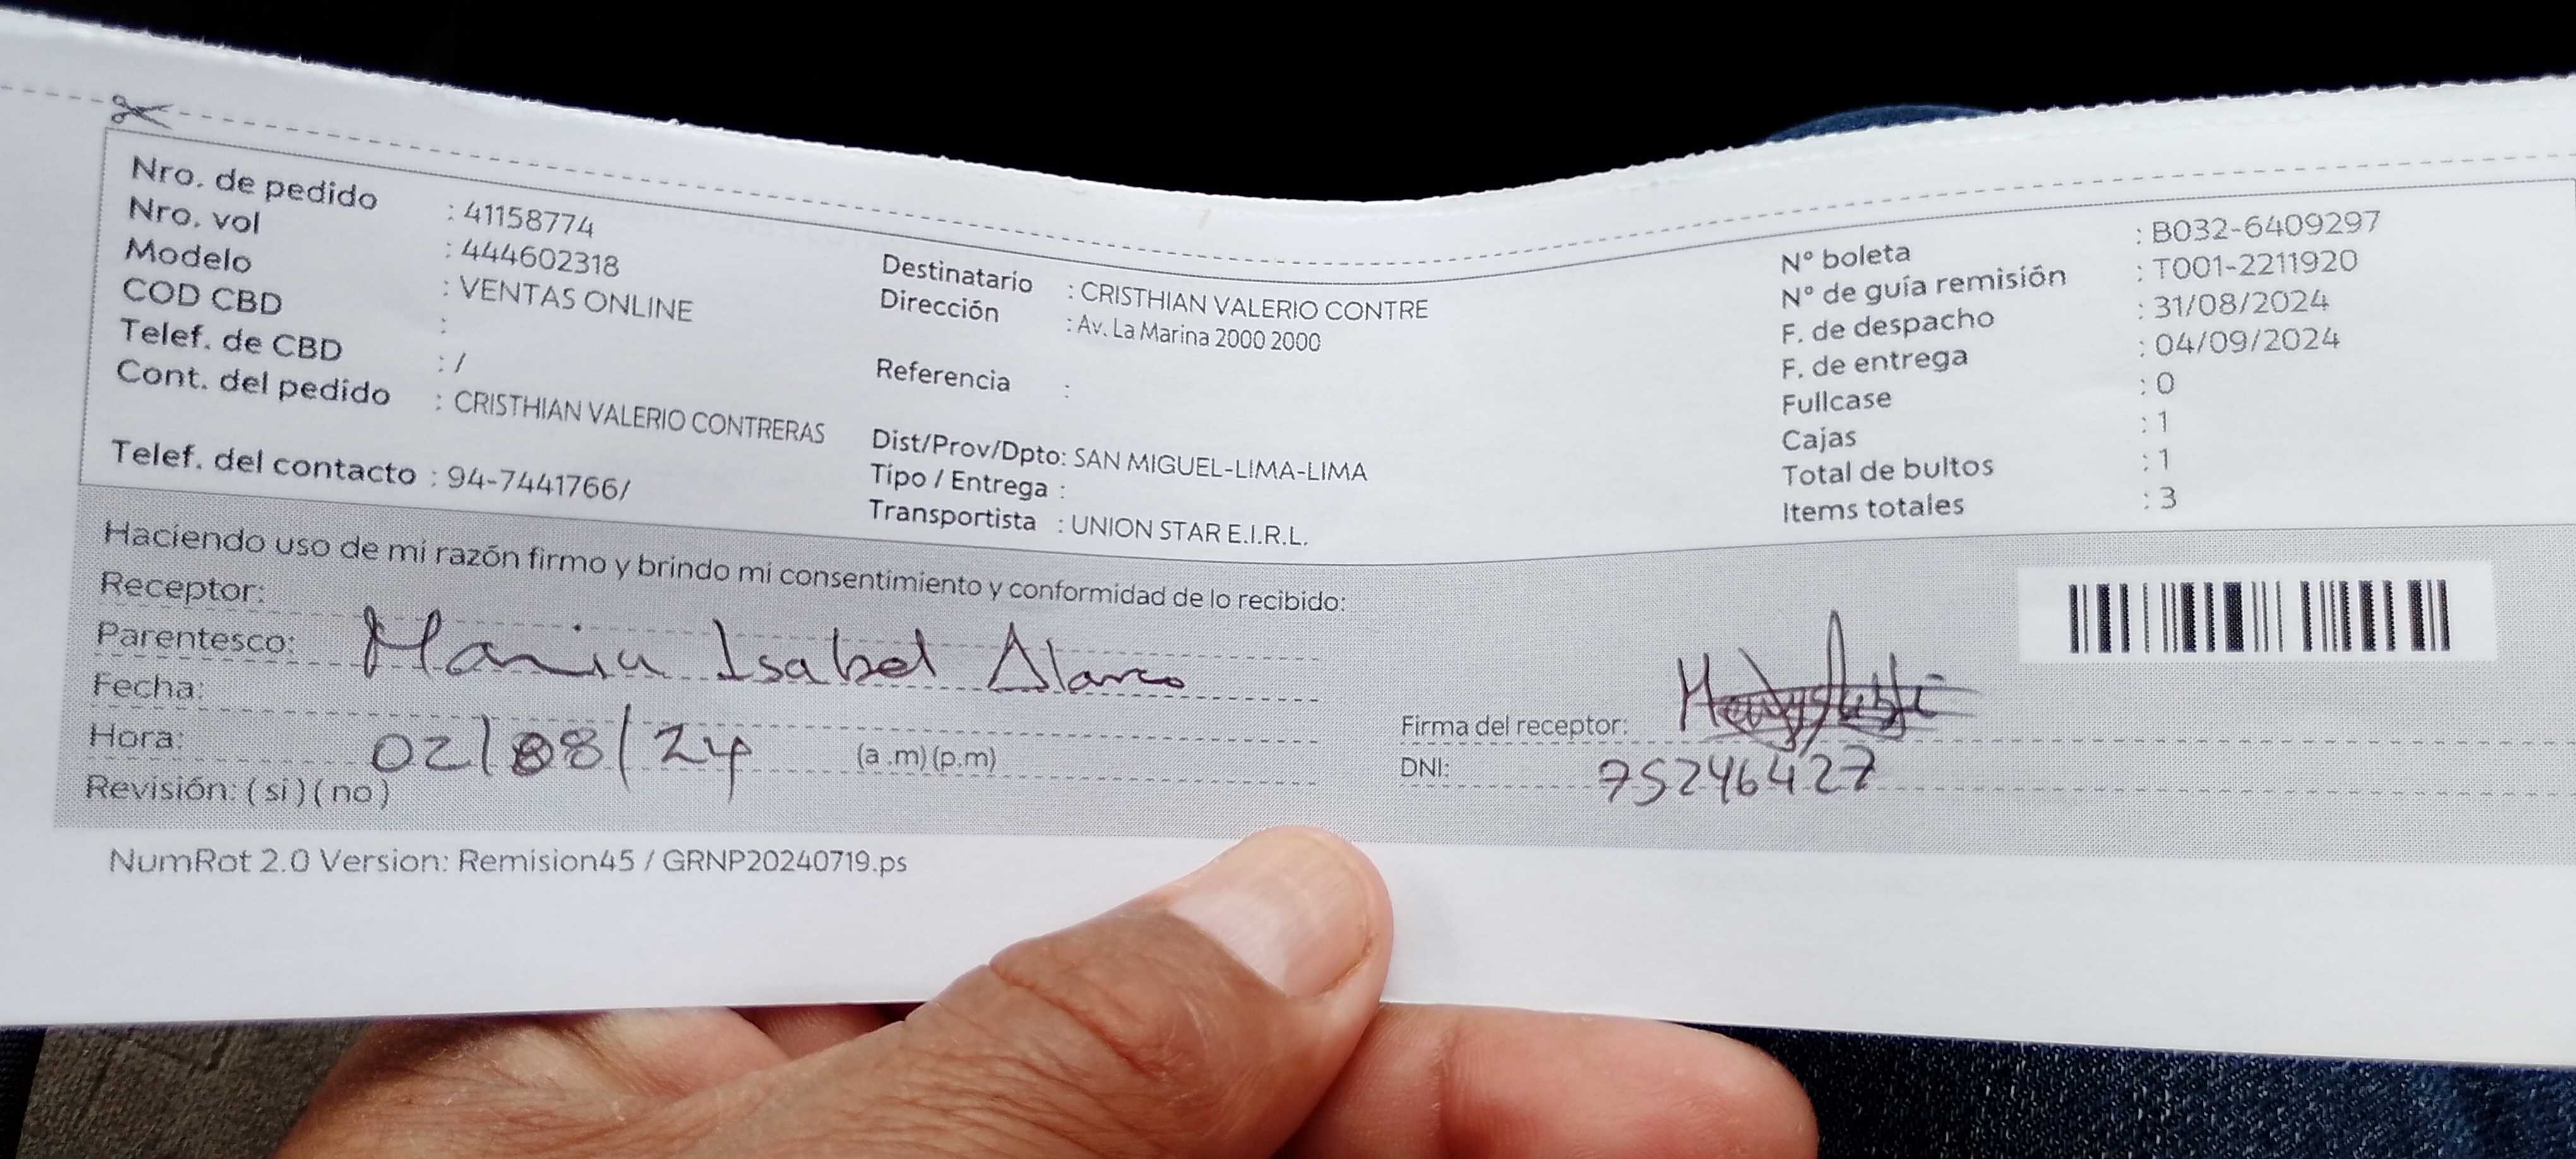 Nro. de pedido : 41158774
Nro. vol : 444602318
Modelo : VENTAS ONLINE
COD CBD :
Telef. de CBD : /
Cont. del pedido : CRISTHIAN VALERIO CONTRERAS
Telef. del contacto : 94-7441766/
Destinatario : CRISTHIAN VALERIO CONTRE
Dirección : Av. La Marina 2000 2000
Referencia :
Dist/Prov/Dpto: SAN MIGUEL-LIMA-LIMA
Tipo / Entrega :
Transportista : UNION STAR E.I.R.L.
N° boleta : B032-6409297
N° de guía remisión : T001-2211920
F. de despacho : 31/08/2024
F. de entrega : 04/09/2024
Fullcase : 0
Cajas : 1
Total de bultos : 1
Items totales : 3
Haciendo uso de mi razón firmo y brindo mi consentimiento y conformidad de lo recibido:
Receptor:
Parentesco: Maria Isabel Alarco
Fecha:
Hora: 02/08/24 (a .m) (p.m)
Revisión: ( si ) ( no )
Firma del receptor:
DNI: 75246427
NumRot 2.0 Version: Remision45 / GRNP20240719.ps